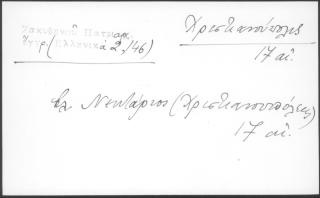 Ζακυθηνοῦ Πατριαρ.
ἔγγρ. (Ἑλληνικά 2, /46)
Χριστιανούπολις
17 αἰ.
Νεκτάριος (Χριστιανουπόλεως)
17 αἰ.